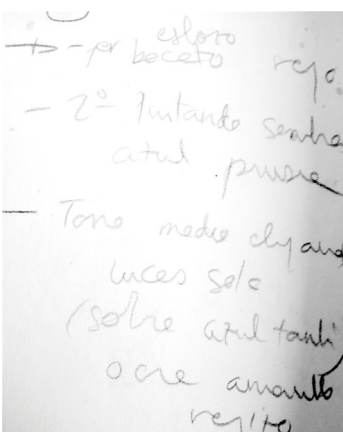 esbozo
- per boceto rojo
- 2º Pintando sombra
azul prusia
- Tono medio dejando
luces solo
(sobre azul tambi
ocre amarillo
rojito